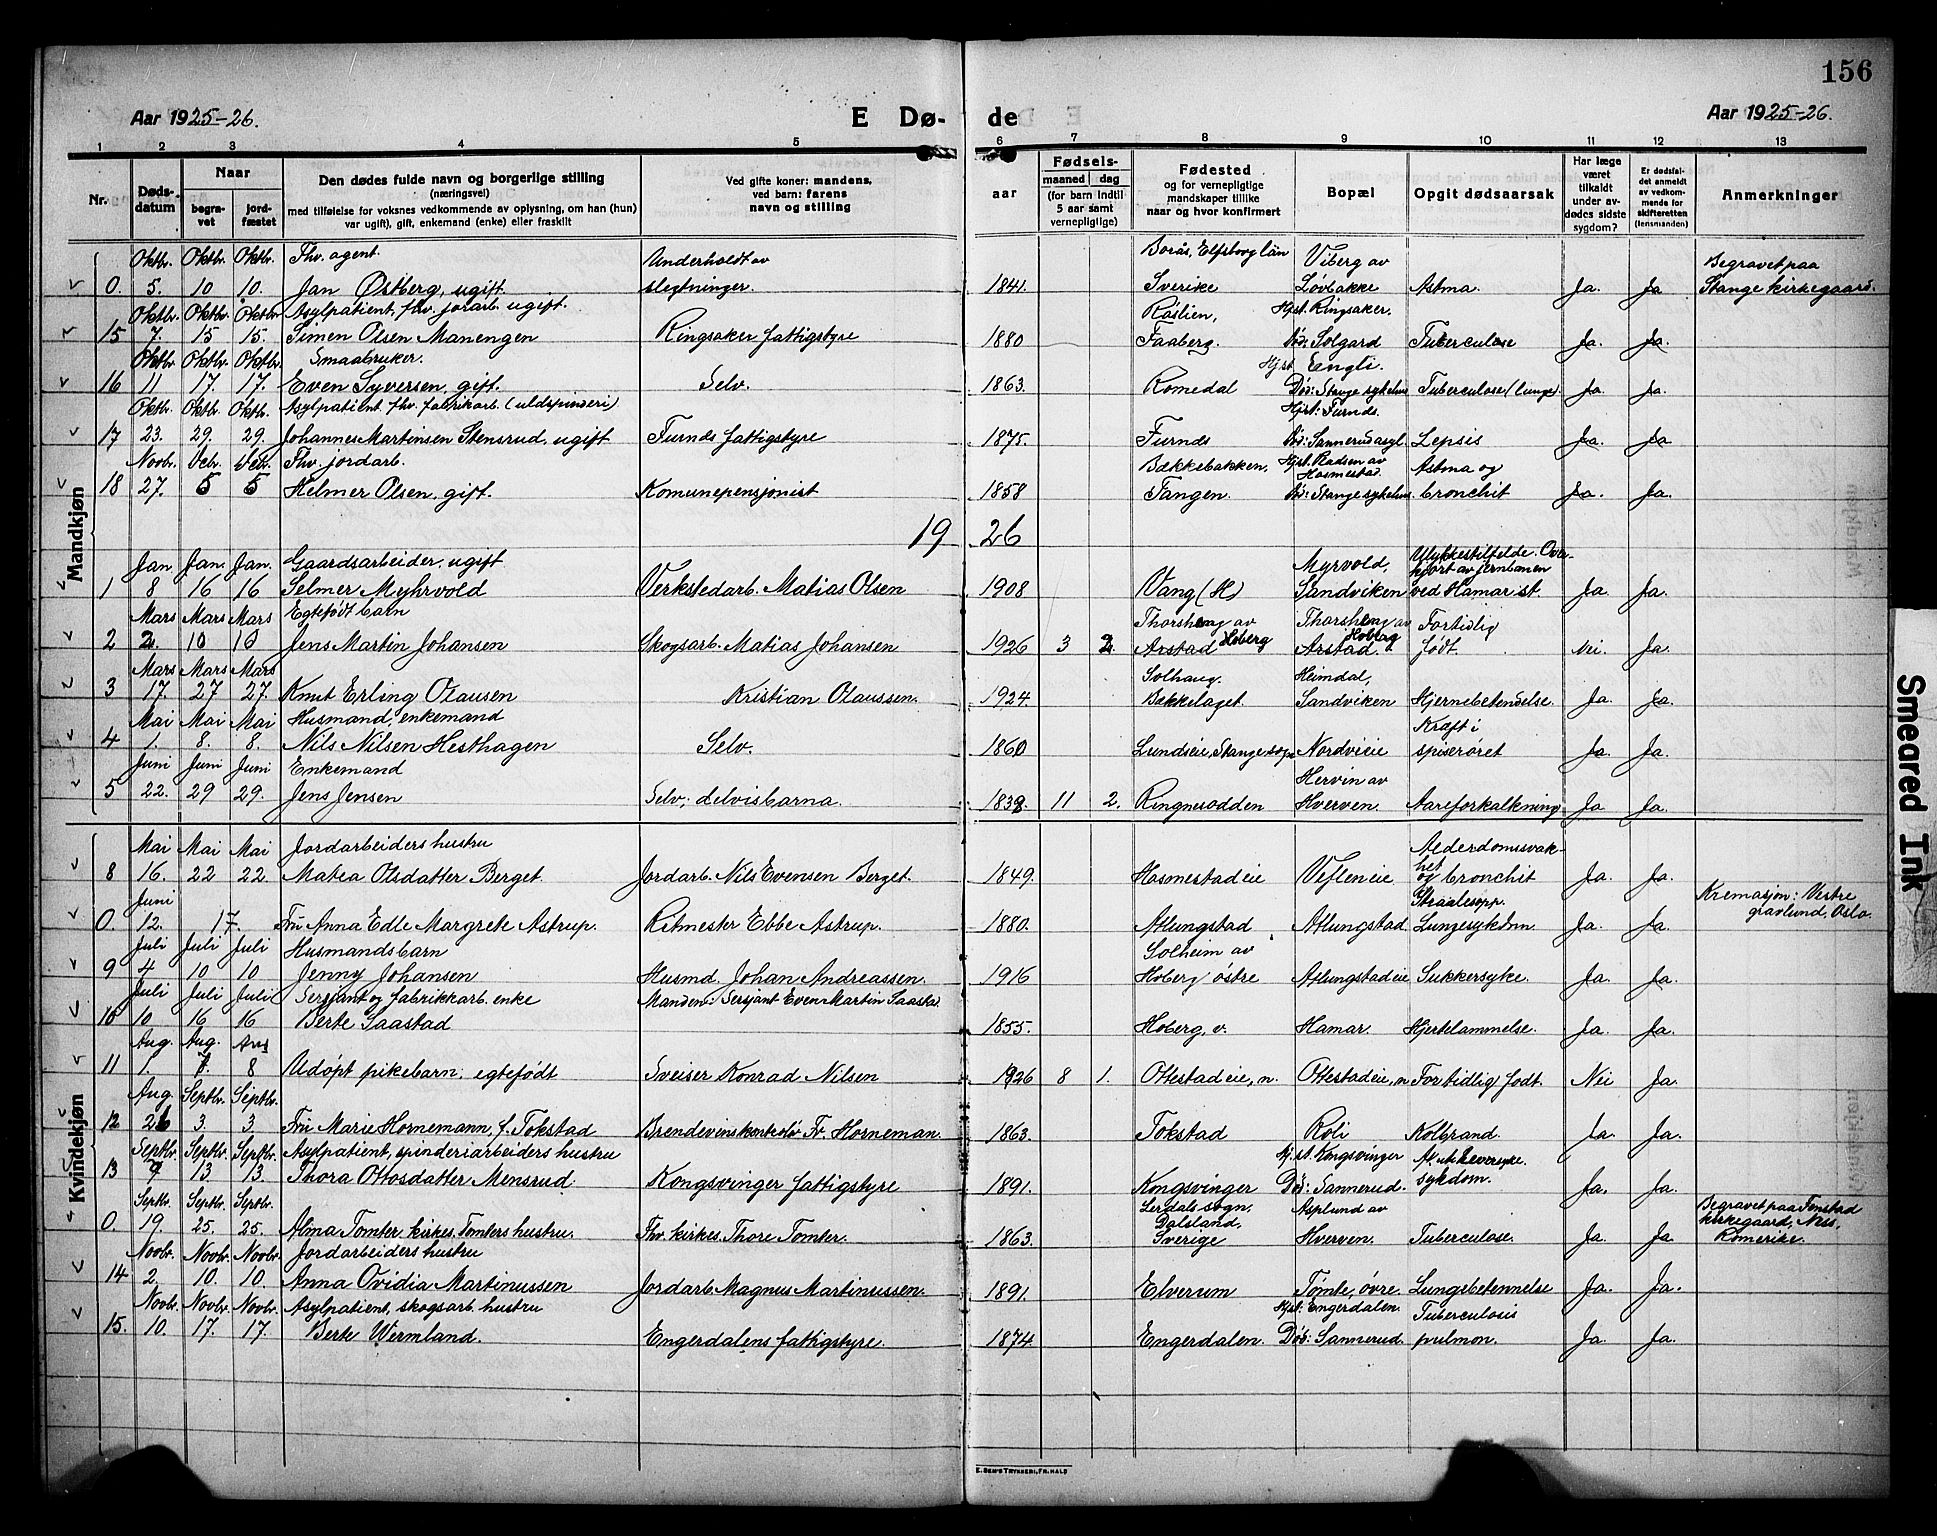 156
Aar 1925-26.
E Dø-
de
Aar 1925-26.
1 2 3 4 5 6 7 8 9 10 11 12 13
Nr.
Døds-
datum
Naar
begra-
vet
jord-
fæstet
Den dødes fulde navn og borgerlige stilling
(næringsvei)
med tilføielse for voksnes vedkommende av oplysning, om han (hun)
var ugift), gift, enkemand (enke) eller fraskilt
Ved gifte koner: mandens,
ved barn: farens
navn og stilling
aar
Fødsels-
maaned dag
(for barn indtil
5 aar samt
vernepligtige)
Fødested
og for vernepligtige
mandskaper tillike
naar og hvor konfirmert
Bopæl
Opgit dødsaarsak
Har læge
været
tilkaldt
under av-
dødes sidste
sygdom?
Er dødsfal-
det anmeldt
av vedkom-
mende for
skifteretten
(lensmanden)
Anmerkninger
Mandkjøn
Oktbr. Oktbr. Oktbr. Fhv. agent. Underholdt av Borås, Elfsborg län Viberg av Begravet paa
0. 5. 10 10. Jan Østberg, ugift. slegtninger. 1841. Sverike Løvbakke Astma. Ja. Ja Stange kirkegaard.
Oktbr. Oktbr. Oktbr Asylpatient, fhv. jorarb. ugift. Råslien, Hjst. Ringsaker.
15 7. 15 15. Simen Olsen Manengen Ringsaker fattigstyre 1880 Faaberg. Død: Solgard Tuberculose Ja. Ja.
Oktbr. Oktbr. Oktbr. Smaabruker. Hjst Engli.
16 11 17. 17. Even Syversen, gift. Selv. 1863. Romedal Død: Stange sykehus Tuberculose (Lunge). Ja. Ja.
Oktbr. Oktbr. Oktbr. Asylpatient, fhv. fabrikarb. (uldspinderi) Hjst: Furnds.
17 23. 29. 29. Johannes Martinsen Stensrud, ugift. Furnds fattigstyre 1875. Furnds Død: Sannerud asyl. Lepsis Ja. Ja
Novbr. Debr. Debr. Fhv. jordarb. Bækkebakken, Hjst. Rødsen av Hosmestad Astma og
18 27. 5 5 Helmer Olsen, gift. Komunepensjonist 1858 Tangen. Død: Stange sykehus. bronchit Ja. Ja.
19 26
Jan Jan. Jan. Gaardsarbeider, ugift Myrvold, Ulykkestilfelde. Over-
kjørt av jernbanen
1 8 16 16 Selmer Myhrvold Verkstedarb. Matias Olsen 1908 Vang (H) Sandviken ved Hamar st. Ja. Ja.
Mars Mars Mars Egtefødt barn Thorshaug av Thorshaug av Fortidlig
2 2. 10 10 Jens Martin Johansen Skogsarb. Matias Johansen 1926 3 2 Arstad Hoberg Arstad Hoberg født. Nei. Ja.
Mars Mars Mars Solhaug. Heimdal,
3 17. 27 27. Knut Erling Olausen Kristian Olaussen. 1924. Bækkelaget. Sandviken Hjernebetendelse. Ja. Ja.
Mai Mai Mai Husmand, enkemand Kræft i
4 1. 8. 8. Nils Nilsen Hesthagen Selv. 1860 Lundseie, Stange sogn Nordvieie spiserøret Ja. Ja.
Juni Juni Juni Enkemand Hervin av
5 22. 29 29. Jens Jensen Selv, delvis barna. 1838 11 2. Ringnesodden Hverven. Aareforkalkning Ja Ja.
Kvindekjøn
Mai Mai Mai Jordarbeiders hustru Alderdomssvak-
het
8 16. 22 22. Matea Olsdatter Berget. Jordarb. Nils Evensen Berget. 1849. Hosmestadeie Veflen eie. og bronchit Ja. Ja.
Juni Straalesopp. Kremasjon: Vestre
gravlund, Oslo.
0. 12. 17. Fru Anna Edle Margrete Astrup. Ritmester Ebbe Astrup. 1880. Atlungstad Atlungstad Lungesykdom. Ja. Ja.
Juli Juli Juli Husmandsbarn Solheim av
9 4 10 10 Jenny Johansen Husmd. Johan Andreassen. 1916 Hoberg østre Atlungstadeie Sukkersyke. Ja. Ja.
Juli Juli Juli Sersjant og fabrikkarb. enke Manden: Sersjant Even Martin Saastad.
10 10 16 16 Berte Saastad 1855. Hoberg, v. Hamar. Hjertelammelse. Ja. Ja.
Aug. Aug. Aug
11 1. 7. 8 Udøpt pikebarn, egtefødt Sveiser Konrad Nilsen 1926 8 1. Ottestadeie, n. Ottestadeie, n Fortidlig født. Nei Ja.
Aug. Septbr. Septbr.
12 26 3. 3 Fru Marie Hornemann, f. Tokstad Brendevinskontrolør Fr. Horneman. 1863. Tokstad Roli Kolbrand. Ja. Ja.
Septbr. Septbr. Septbr. Asylpatient, spinderiarbeiders hustru Hj. st. Kongsvinger Akut leversyke.
13. 9 13. 13. Thora Ottosdatter Mensrud. Kongsvinger fattigstyre 1891. Kongsvinger Død: Sannerud. sykdom. Ja. Ja.
Septbr. Septbr. Septbr. Lerdals sogn, Dalsland, Asplund av Begravet paa Fenstad
kirkegaard, Nes,
0. 19. 25. 25. Alma Tomter, kirkes. Tomters hustru. Fhv. kirkes. Thore Tomter. 1863. Sverige Hverven. Tuberculose. Ja. Ja Romerike.
Novbr. Novbr. Novbr. Jordarbeiders hustru
14 2. 10. 10. Anna Ovidia Martinussen Jordarb. Magnus Martinussen. 1891. Elverum Tømte, øvre. Lungebetennelse Ja. Ja.
Novbr. Novbr. Novbr. Asylpatient, skogsarb. hustru Hjst: Engerdalen. Tuberculosis
15. 10. 17. 17. Berte Wermland. Engerdalens fattigstyre. 1874. Engerdalen. Død: Sannerud. pulmon. Ja. Ja.
E. SEM'S TRYKKERI, FR.HALD
Smeared Ink